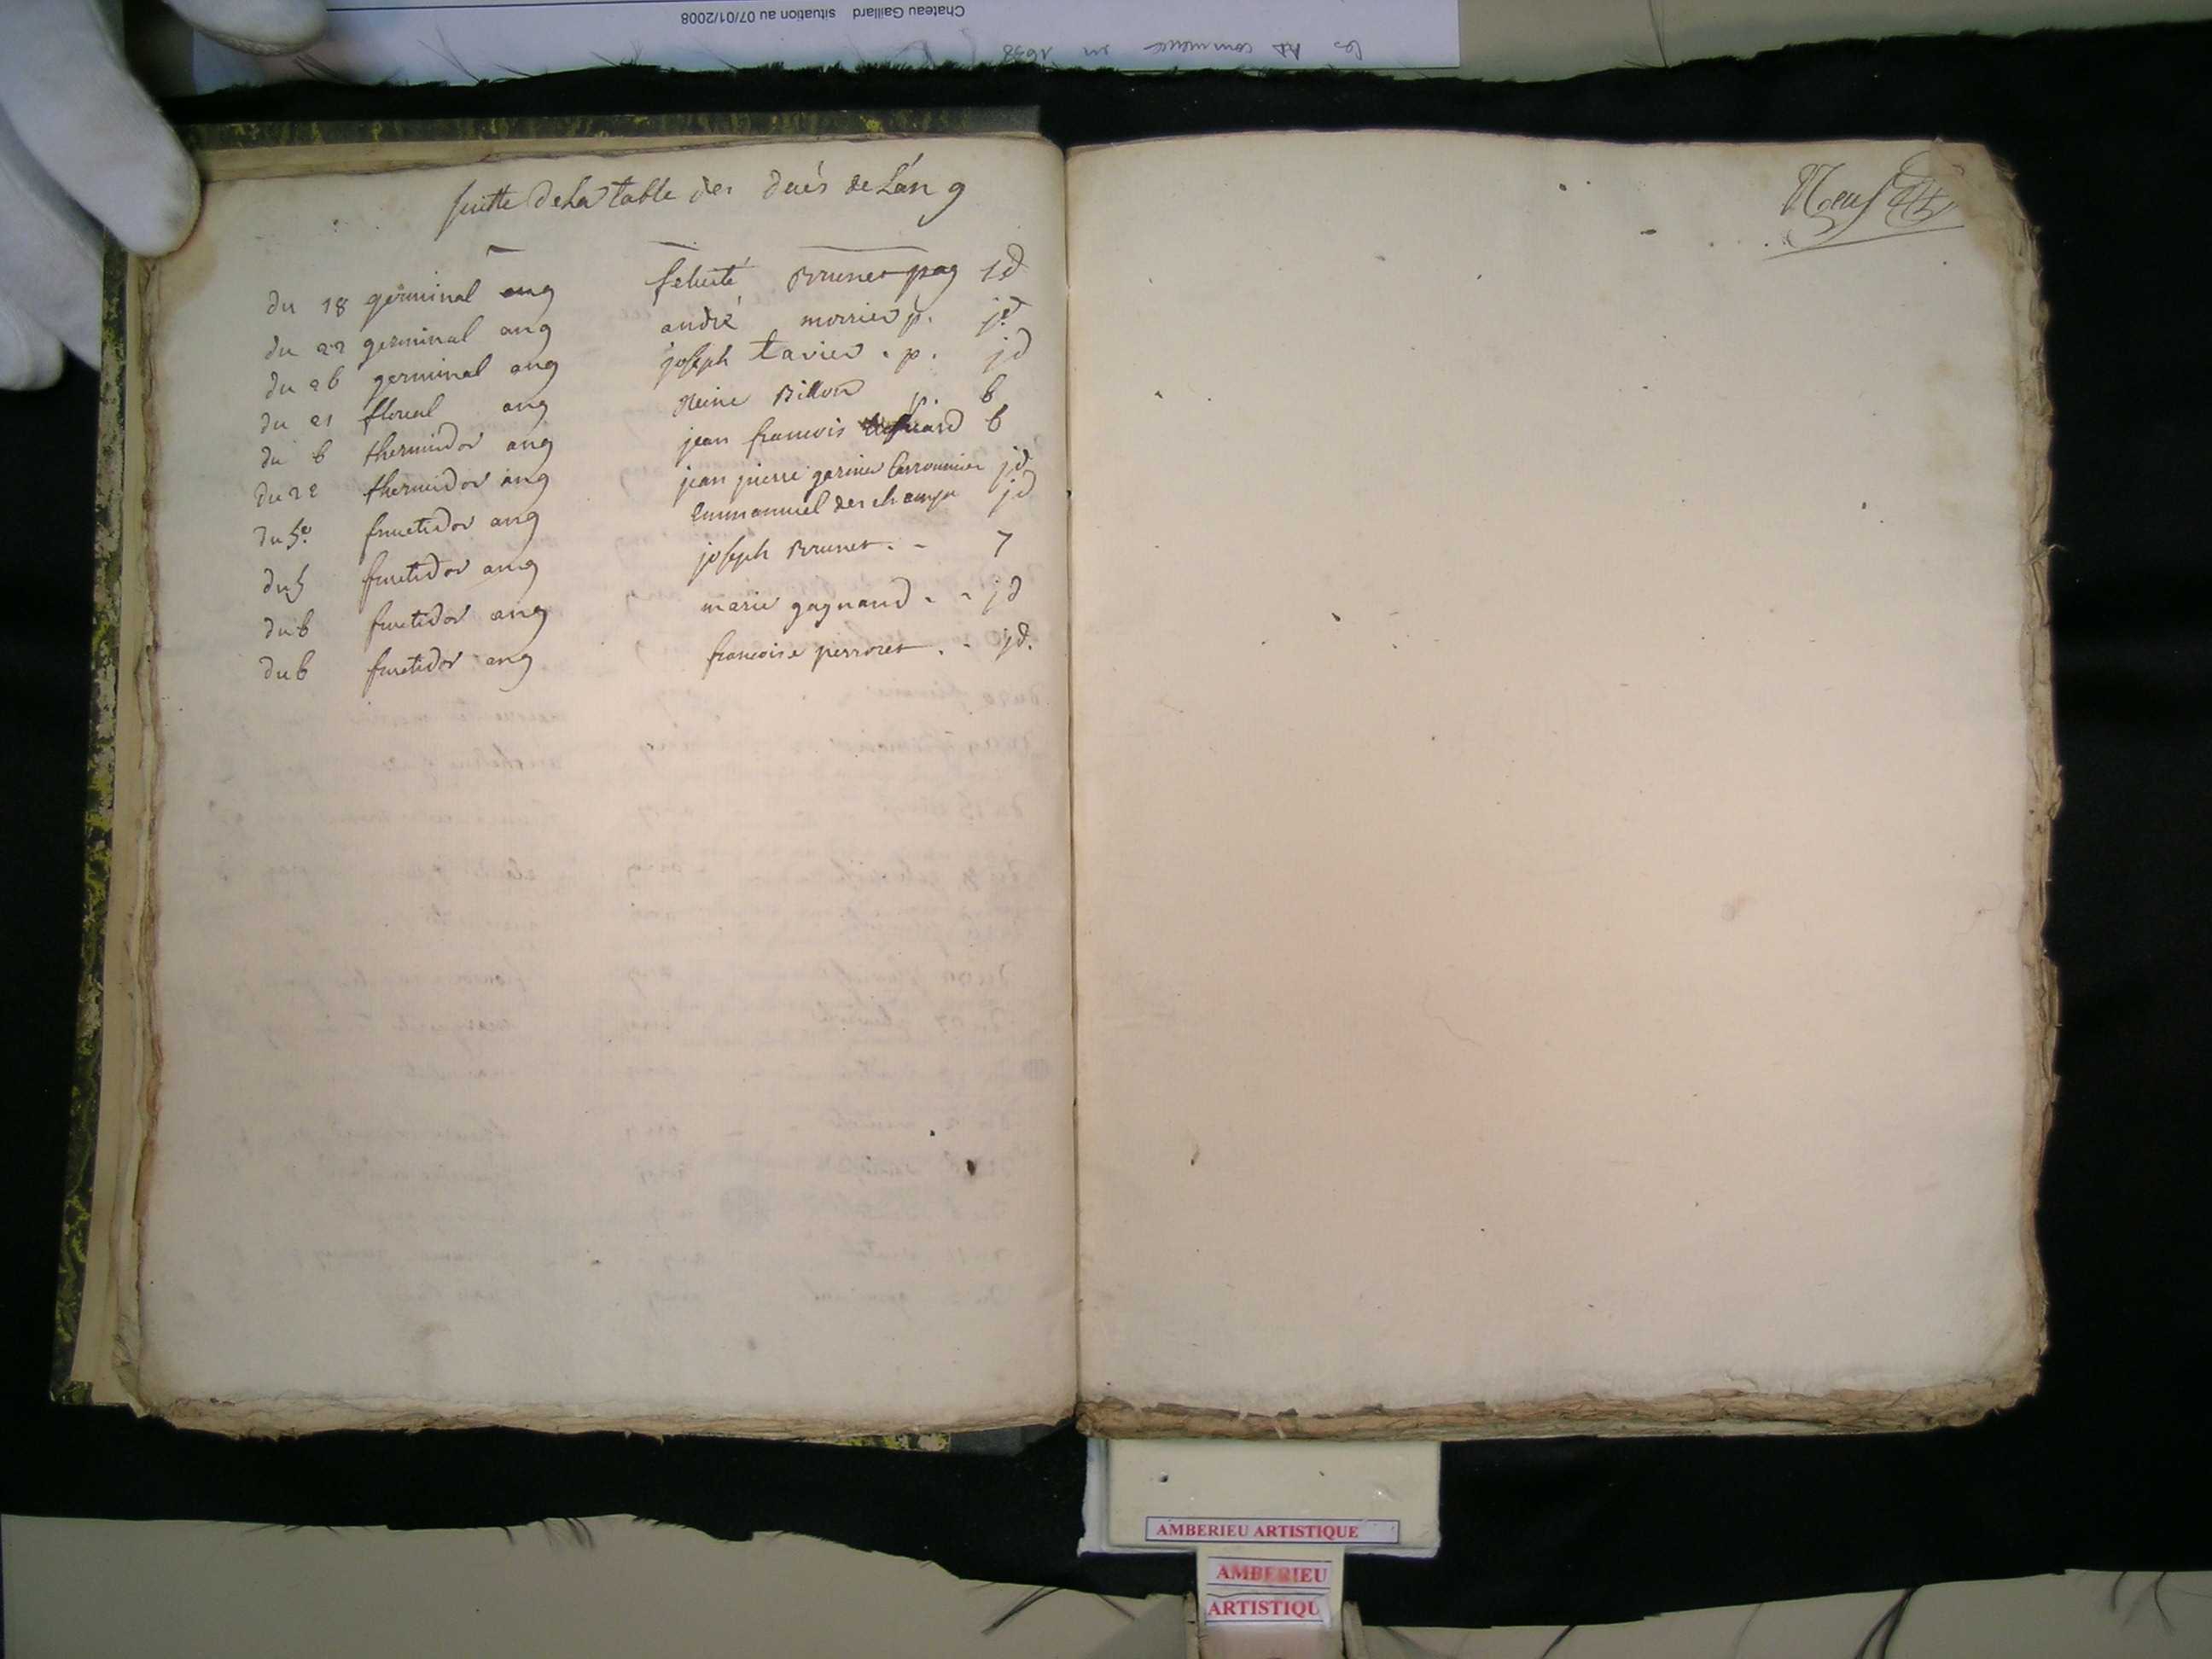 Chateau Gaillard situation au 07/01/2008
les commence en 1638
suitte de La table des décés de L'an 9
du 18 germinal an 9 felicité Brunet pag 5 d
du 22 germinal an 9 andré morrier p. jd
du 26 germinal an 9 joseph tavier . p . jd
du 21 floreal an 9 Reine Billon p. 6
du 6 thermidor an 9 jean francois 6
du 22 thermidor an 9 jean pierre garinier jd
du 5e fructidor an 9 Emmanuel deschamps jd
du 5 fructidor an 9 joseph Brunet . - 7
du 6 fructidor an 9 marie gagnand . - jd
du 6 fructidor an 9 francoise perroset . - jd.
Neuf
AMBERIEU ARTISTIQUE
AMBERIEU
ARTISTIQU